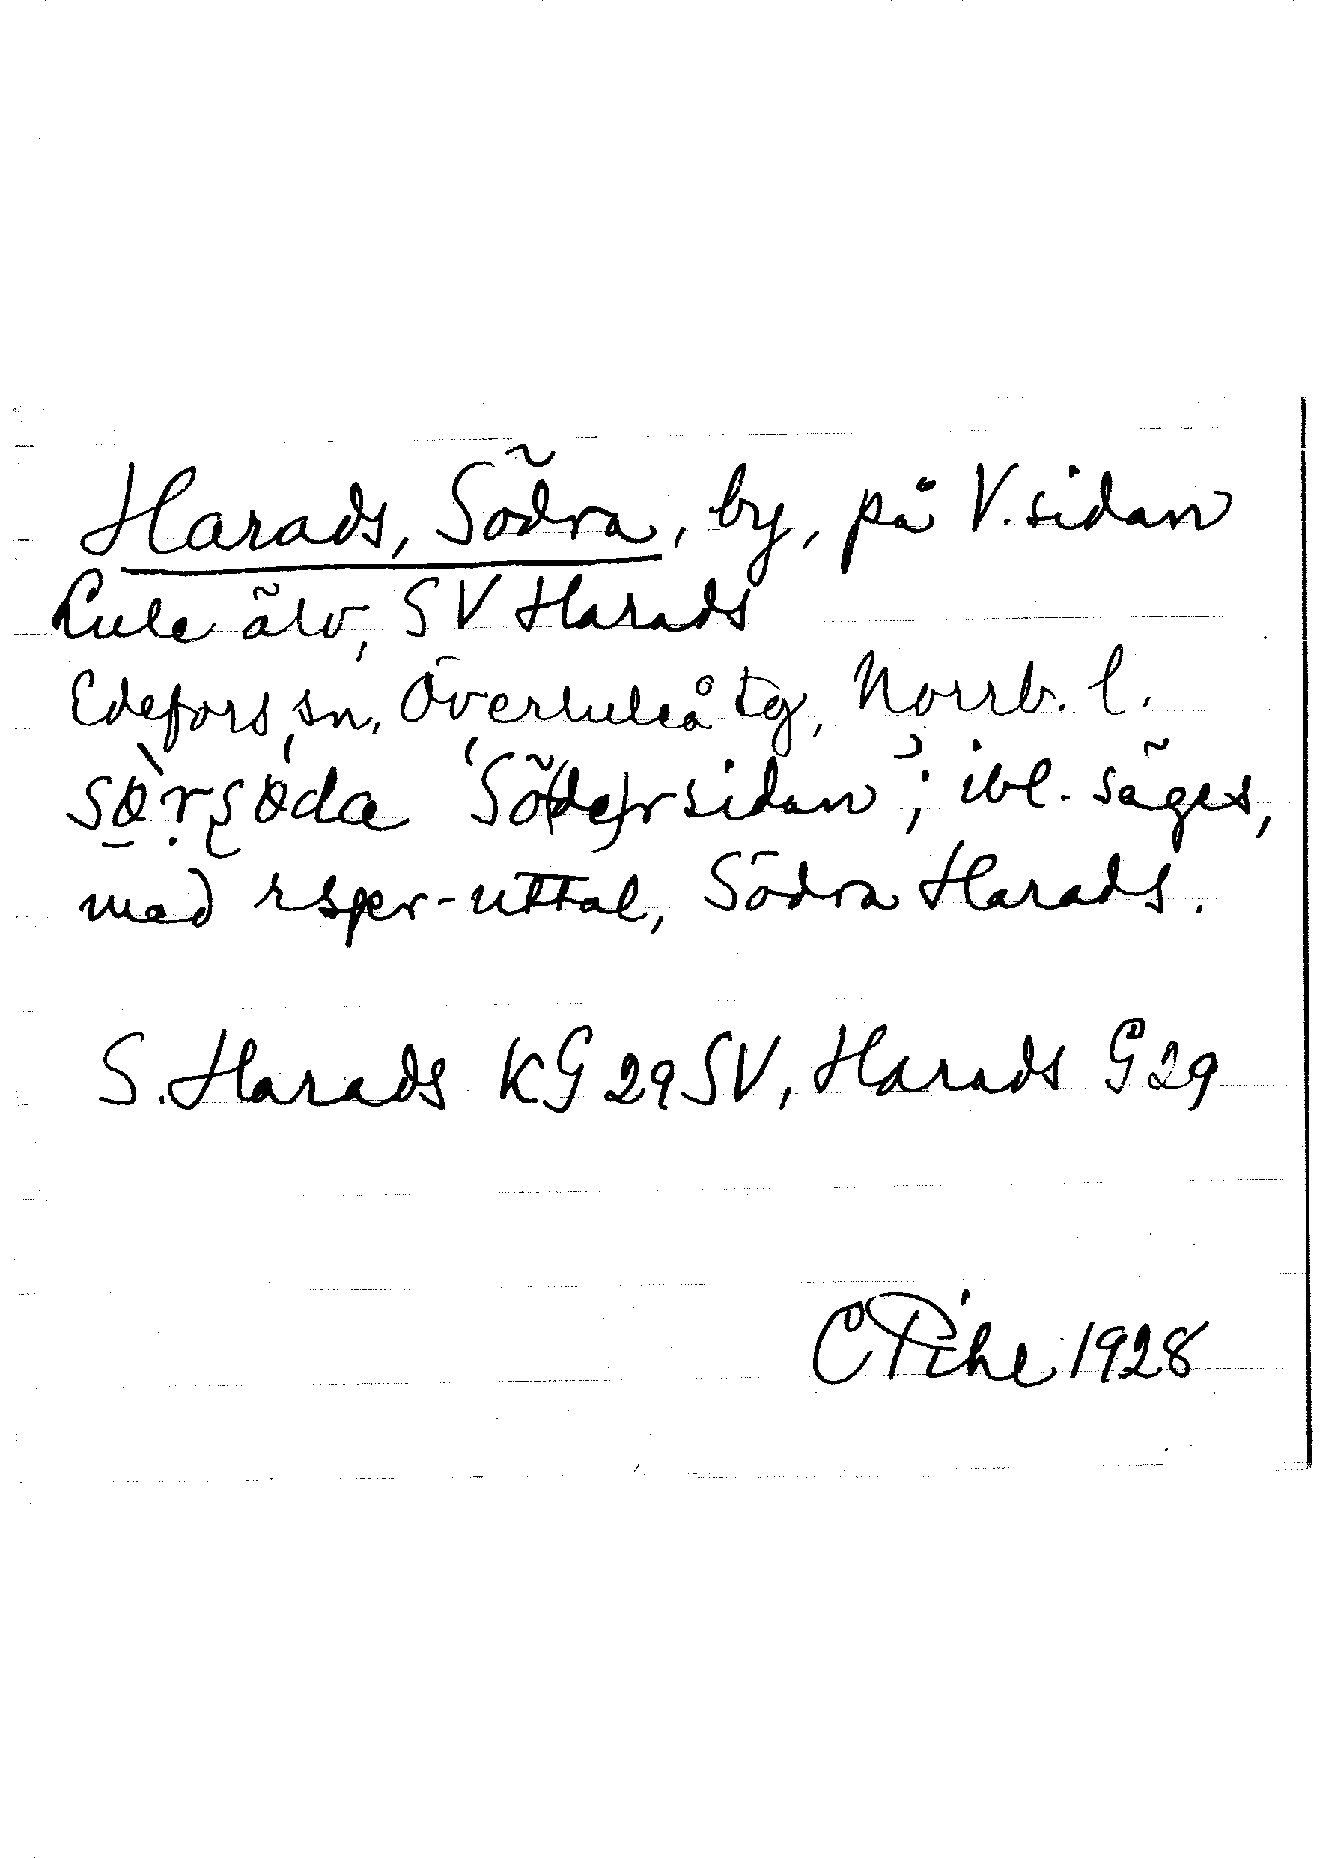 Harads, Södra, by, på V. sidan
Lule älv, SV Harads
Edefors sn, Överluleå tg, Norrb. l.
'Sö(de)rsidan'; ibl. säges,
med rsper-uttal, Södra Harads.
S. Harads KG 29 SV, Harads G 29
C Pihl 1928